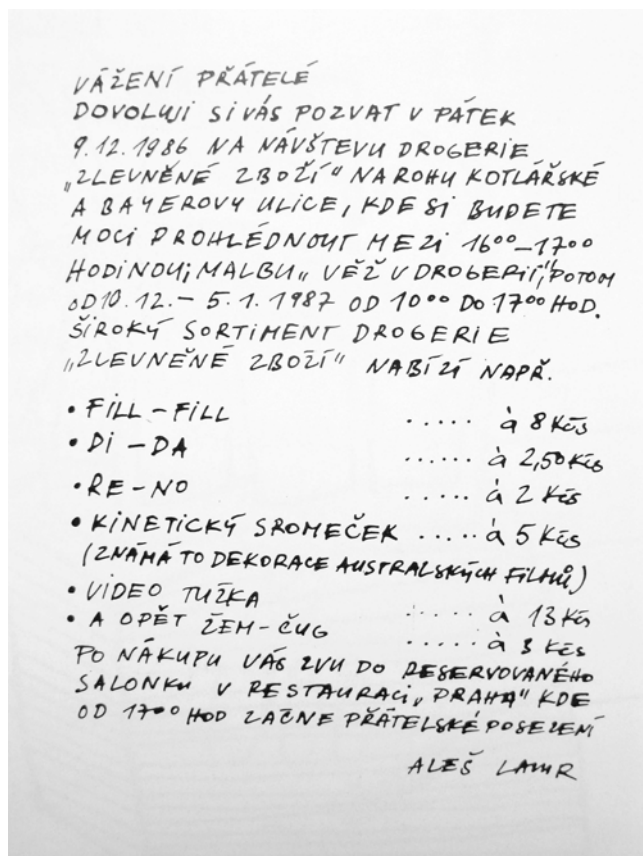 VÁŽENÍ PŘÁTELÉ
DOVOLUJI SI VÁS POZVAT V PÁTEK
9.12.1986 NA NÁVŠTEVU DROGERIE
„ZLEVNĚNÉ ZBOŽÍ“ NA ROHU KOTLÁŘSKÉ
A BAYEROVY ULICE, KDE SI BUDETE
MOCI PROHLÉDNOUT MEZI 16⁰⁰–17⁰⁰
HODINOU, MALBU „VĚŽ V DROGERII“, POTOM
OD 10.12. – 5.1.1987 OD 10⁰⁰ DO 17⁰⁰ HOD.
ŠIROKÝ SORTIMENT DROGERIE
„ZLEVNĚNÉ ZBOŽÍ“ NABÍZÍ NAPŘ.
• FILL – FILL ..... à 8 Kčs
• DI – DA ...... à 2,50 Kčs
• RE – NO ..... à 2 Kčs
• KINETICKÝ SROMEČEK ..... à 5 Kčs
(ZNÁMÁ TO DEKORACE AUSTRALSKÝCH FILMŮ)
• VIDEO TUŽKA ..... à 13 Kčs
• A OPĚT ŽEM-ČUG ..... à 3 Kčs
PO NÁKUPU VÁS ZVU DO RESERVOVANÉHO
SALONKU V RESTAURACI „PRAHA“ KDE
OD 17⁰⁰ HOD ZAČNE PŘÁTELSKÉ POSEZENÍ
ALEŠ LAMR